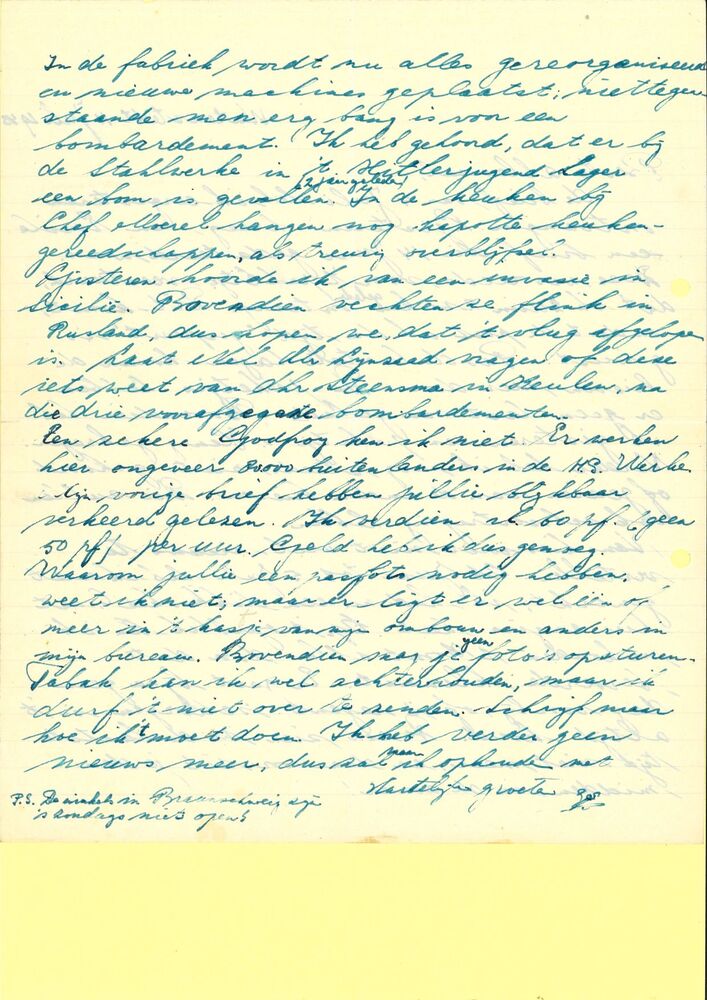 In de fabriek wordt nu alles gereorganiseerd
en nieuwe machines geplaatst; niettegen-
staande men erg bang is voor een
bombardement. Ik heb gehoord, dat er bij
de Stahlwerke in 't Hitlerjugend Lager
een bom is gevallen. (2 jaar geleden) In de keuken bij
Chef Moerel hangen nog kapotte keuken-
gereedschappen, als treurig overblijfsel.
Gisteren hoorde ik van een invasie in
Sicilië. Bovendien vechten ze flink in
Rusland, dus hopen we, dat 't vlug afgelopen
is. Laat Mel Dhr Lijnzaad vragen of deze
iets weet van Dhr Steensma in Keulen, na
die drie voorafgegane bombardementen.
Een zekere Godfroy ken ik niet. Er werken
hier ongeveer 80000 buitenlanders in de H.G. Werke
Mijn vorige brief hebben jullie blijkbaar
verkeerd gelezen. Ik verdien nl. 60 pf. (geen
50 pf) per uur. Geld heb ik dus genoeg.
Waarom jullie een pasfoto nodig hebben,
weet ik niet; maar er ligt er wel één of
meer in 't kastje van mijn ombouw en anders in
mijn bureau. Bovendien mag je geen foto's opsturen.
Tabak kan ik wel achterhouden, maar ik
durf 't niet over te zenden. Schrijf maar
hoe ik 't moet doen. Ik heb verder geen
nieuws meer, dus zal ik maar ophouden met
Hartelijke groeten
P.S. De winkels in Braunschweig zijn
's zondags niet open!